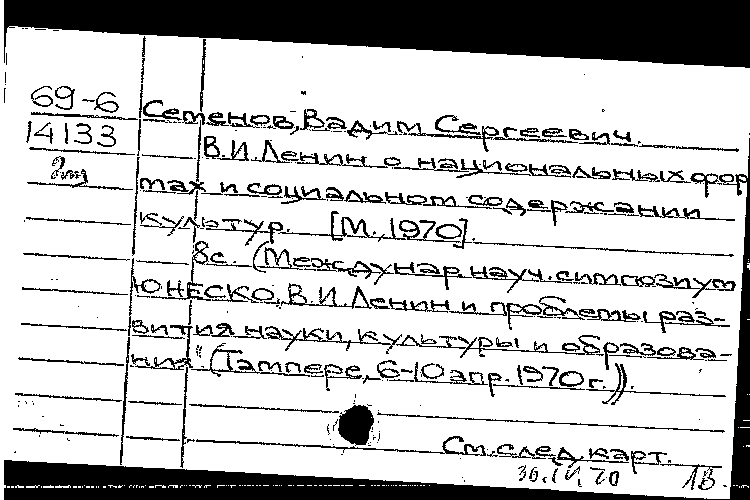 69-6
14133
Семенов, Вадим Сергеевич.
В.И.Ленин о национальных фор
мах и социальном содержании
культур. [М., 1970].
8с. (Междунар. науч. симпозиум
ЮНЕСКО „В.И.Ленин и проблемы раз-
вития науки, культуры и образова-
ния" (Тампере, 6-10 апр. 1970г.)).
См. след. карт.
30.IV.70 ЛВ.